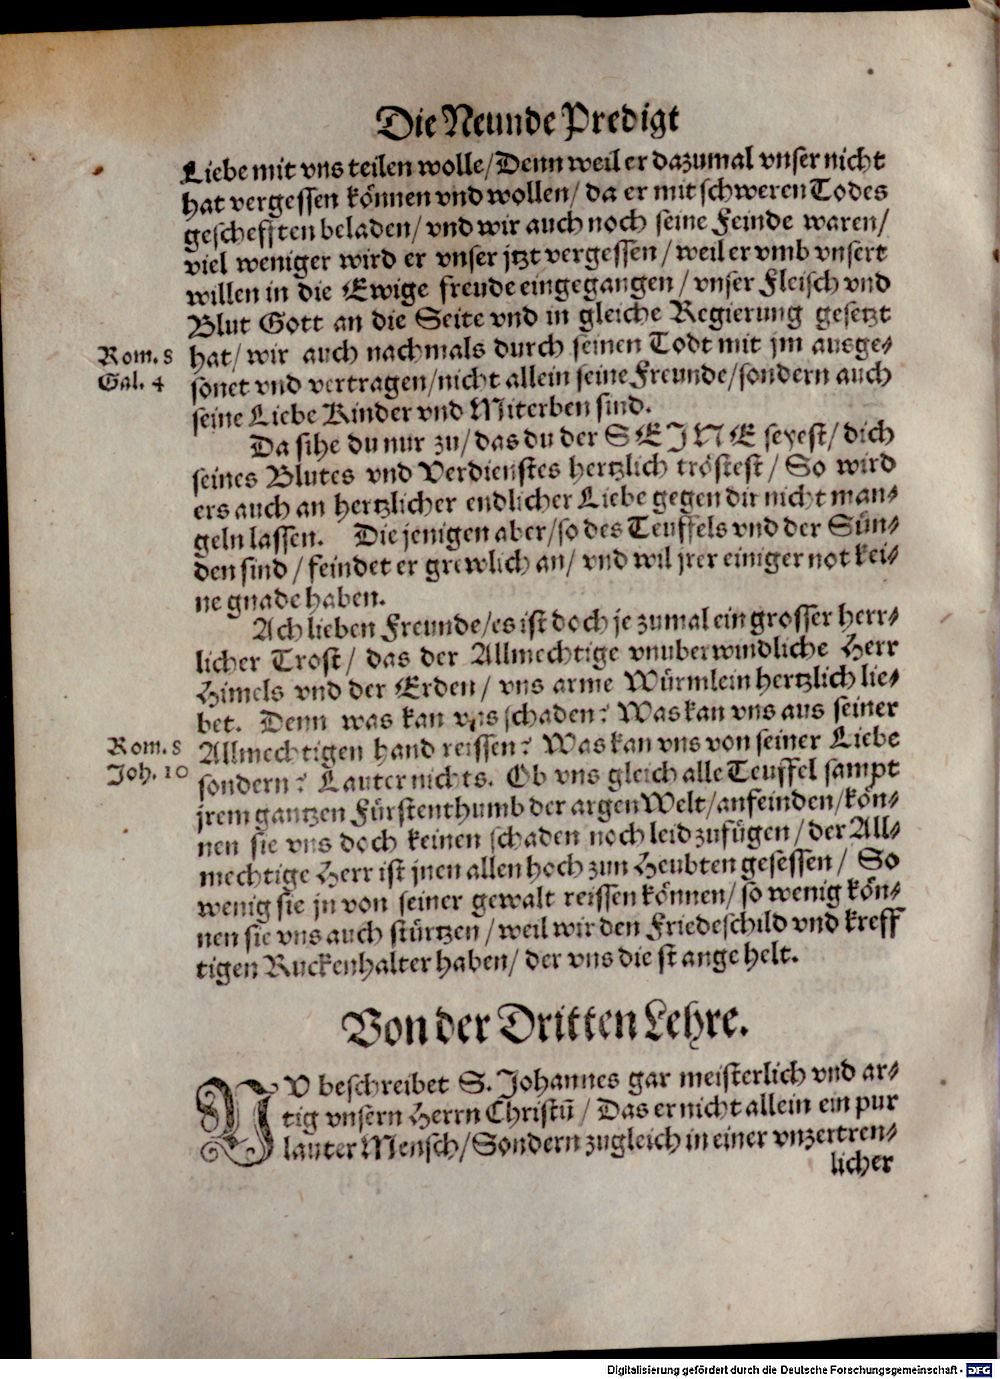 Die Neunde Predigt
Liebe mit vns teilen wolle/Denn weil er dazumal vnser nicht
hat vergessen können vnd wollen/ da er mit schweren Todes
geschefften beladen/ vnd wir auch noch seine Feinde waren/
viel weniger wird er vnser jtzt vergessen/ weil er vmb vnsert
willen in die Ewige freude eingegangen/ vnser Fleisch vnd
Blut Gott an die Seite vnd in gleiche Regierung gesetzt
Rom. 8 hat/ wir auch nachmals durch seinen Todt mit jm ausge-
Gal. 4 sönet vnd vertragen/nicht allein seine Freunde/sondern auch
seine Liebe Kinder vnd Miterben sind.
Da sihe du nur zu/ das du der SEINE seyest/ dich
seines Blutes vnd Verdienstes hertzlich tröstest/ So wird
ers auch an hertzlicher endlicher Liebe gegen dir nicht man-
geln lassen. Die jenigen aber/so des Teuffels vnd der Sün-
den sind/ feindet er grewlich an/ vnd wil jrer einiger not kei-
ne gnade haben.
Ach lieben Freunde/es ist doch je zumal ein grosser herr-
licher Trost/ das der Allmechtige vnuberwindliche Herr
Himels vnd der Erden/ vns arme Würmlein hertzlich lie-
bet. Denn was kan vns schaden? Was kan vns aus seiner
Rom. 8 Allmechtigen hand reissen? Was kan vns von seiner Liebe
Joh. 10 sondern? Lauter nichts. Ob vns gleich alle Teuffel sampt
jrem gantzen Fürstenthumb der argen Welt/anfeinden/kön-
nen sie vns doch keinen schaden noch leid zufügen/ der All-
mechtige Herr ist jnen allen hoch zun Heubten gesessen/ So
wenig sie jn von seiner gewalt reissen können/ so wenig kön-
nen sie vns auch stürtzen/ weil wir den Friedeschild vnd kreff
tigen Ruckenhalter haben/ der vns die stange helt.
Von der Dritten Lehre.
NV beschreibet S. Johannes gar meisterlich vnd ar-
tig vnsern Herrn Christū/ Das er nicht allein ein pur
lauter Mensch/Sondern zugleich in einer vnzertren-
licher
Digitalisierung gefördert durch die Deutsche Forschungsgemeinschaft - DFG